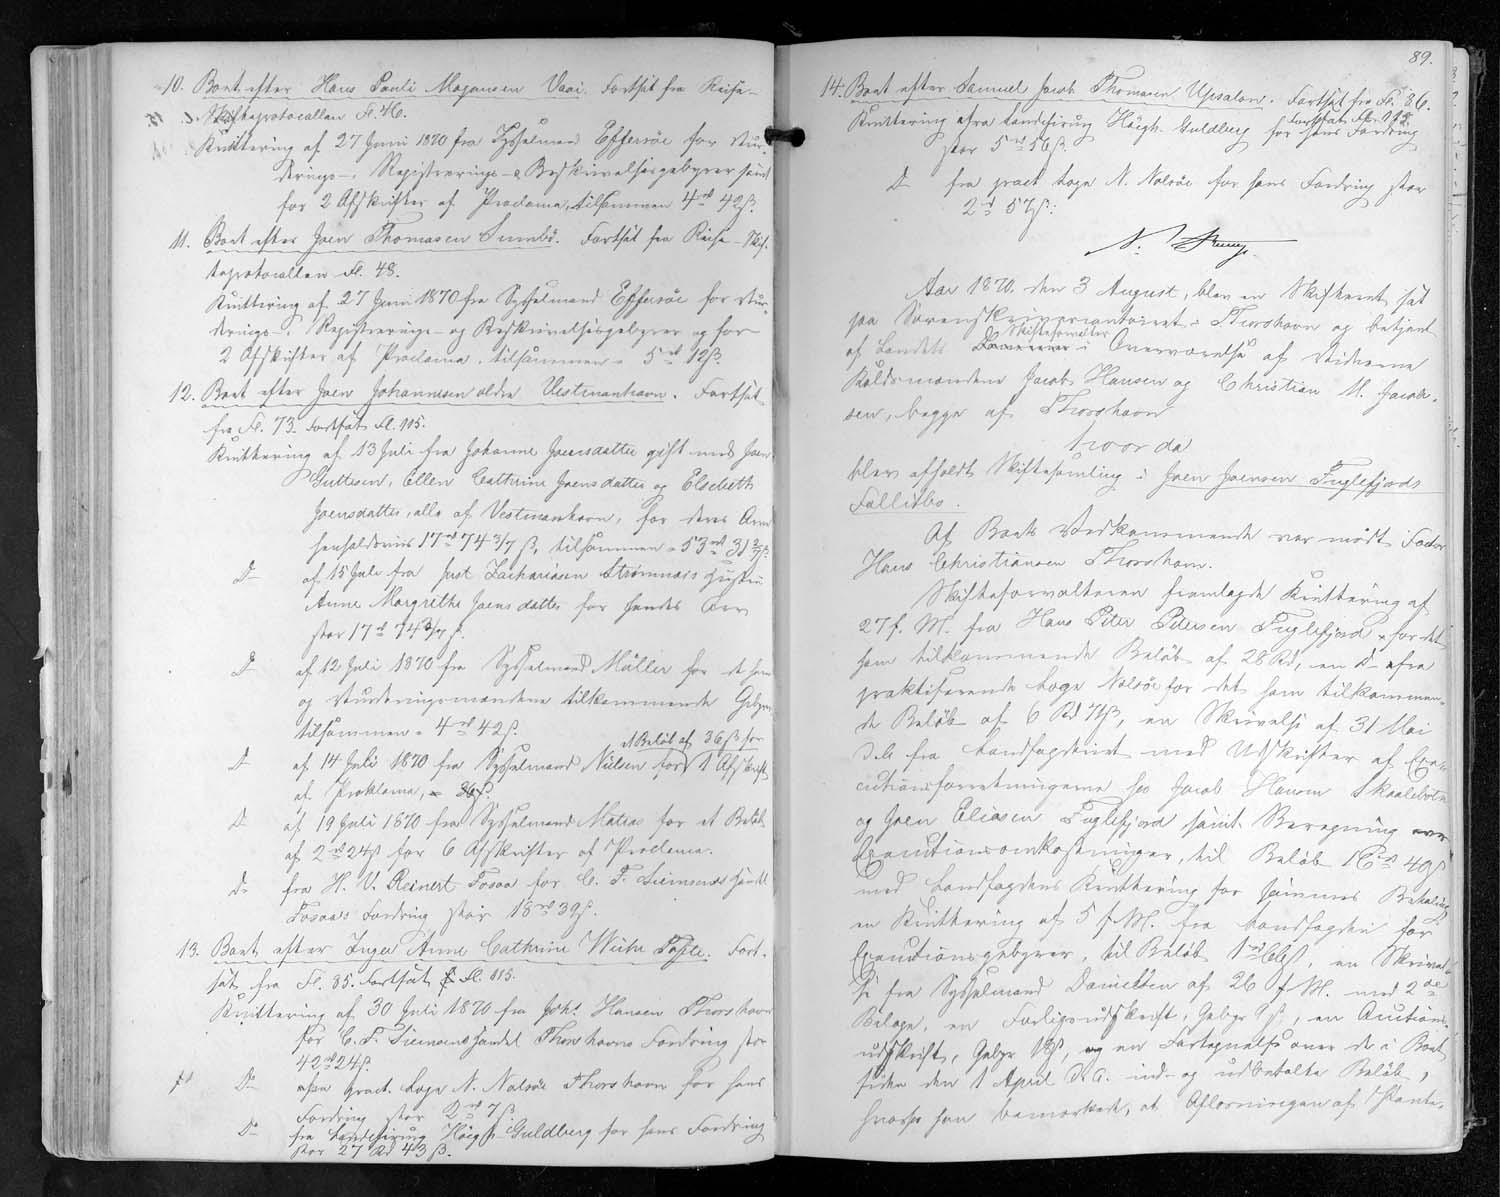 10. Boet efter Hans Pauli Mogensen Vaai. Fortsat fra Reise-
Skifteprotocollen Fl. 46.
Kvittering af 27 Juni 1870 fra Sysselmand Effersøe for Vur-
derings-, Registrerings- & Beskrivelsesgebyrer samt
for 2 Afskrifter af Proclama, tilsammen 4 rd 42 ß.
11. Boet efter Joen Thomasen Sumbø. Fortsat fra Reise-Skif-
teprotocollen Fl. 48.
Kvittering af 27 Juni 1870 fra Sysselmand Effersøe for Vur-
derings-, Registrerings- og Beskrivelsesgebyrer og for
2 Afskrifter af Proclama, tilsammen = 5 rd 12 ß.
12. Boet efter Joen Johannesen ældre Vestmanhavn. Fortsat
fra Fl. 73. Fortsat Fl. 115.
Kvittering af 13 Juli fra Johanne Joensdatter gift med Joen
Guttesen, Ellen Cathrine Joensdatter og Elsebeth
Joensdatter, alle af Vestmanhavn, for deres Arve
17 rd 74 3/7 ß, tilsammen = 53 rd 31 2/7 ß.
D- af 15 Juli fra Just Zachariasen Strømnæs Hustru
Anne Margrethe Joensdatter for hendes Arv
stor 17 rd 74 3/7 ß.
D- af 12 Juli 1870 fra Sysselmand Müller for de ham
og Vurderingsmændene tilkommende Gebyrer
tilsammen = 4 rd 42 ß.
et Beløb af 36 ß for
D- af 14 Juli 1870 fra Sysselmand Nielsen for 1 Afskrift
af Proklama, = 36 ß.
D- af 19 Juli 1870 fra Sysselmand Matras for et Beløb
af 2 rd 24 ß for 6 Afskrifter af Proclama.
D- fra H. V. Reinert Fosaa for C. F. Siemsens Handel
Fosaas Fordring stor 18 rd 39 ß.
13. Boet efter Inger Anne Cathrine Weihe Fosse. Fort-
sat fra Fl. 85. Fortsat Fl. 115.
Kvittering af 30 Juli 1870 fra Johs. Hansen Thorshavn
for C. F. Siemsens Handel Thorshavns Fordring stor
42 rd 24 ß.
D- efra pract. Læge N. Nolsøe Thorshavn for hans
Fordring stor 2 rd 7 ß.
D- fra Landchirurg Høegh-Guldberg for hans Fordring
stor 27 Rd 43 ß.
89.
14. Boet efter Samuel Jacob Thomasen Upsalon. Fortsat fra Fl. 86.
Fortsat Fl. 192.
Kvittering efra Landchirurg Høegh-Guldberg for hans Fordring
stor 5 rd 56 ß.
D- fra pract. Læge N. Nolsøe for hans Fordring stor
2 rd 57 ß.
Aar 1870 den 3 August, blev en Skifteret sat
paa Sorenskrivercontoiret i Thorshavn og betjent
af Landets Skifteforvalter i Overværelse af Vidnerne
Koldsmændene Jacob Hansen og Christian M. Jacob-
sen, begge af Thorshavn
hvor da
blev afholdt Skiftesamling i Joen Joensen Fuglefjords
Fallitbo.
Af Boets Vedkommende var mødt Factor
Hans Christiansen Thorshavn.
Skifteforvalteren fremlagde Kvittering af
27 f. M. fra Hans Peter Petersen Fuglefjord for det
ham tilkommende Beløb af 28 Rd, en D- efra
praktiserende Læge Nolsøe for det ham tilkommen-
de Beløb af 6 Rd 74 ß, en Skrivelse af 31 Mai
d. A. fra Landfogderiet med Udskrifter af Exe-
cutionsforretningerne hos Jacob Hansen Skaalebotn
og Joen Eliasen Fuglefjord samt Beregning over
Executionsomkostninger, til Beløb 40 ß
med Landfogdens Kvittering for sammes Betaling
en Kvittering af 5 f. M. fra Landfogden for
Executionsgebyrer, til Beløb 1 rd 66 ß, en Skrivel-
se fra Sysselmand Danielsen af 26 f. M. med 2de
Bilage, en Forligsudskrift, Gebyr ß, en Auctions-
udskrift, Gebyr ß, og en Fortegnelse over de i Boet
siden den 1 April d. A. ind- og udbetalte Beløb,
hvorhos han bemærkede, at Aflønningen af